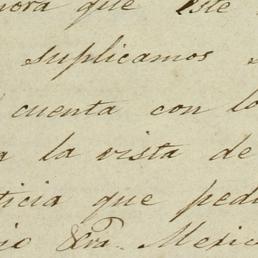 que este
suplicamos
cuenta con lo
a la vista de
ticia que ped
Mexic